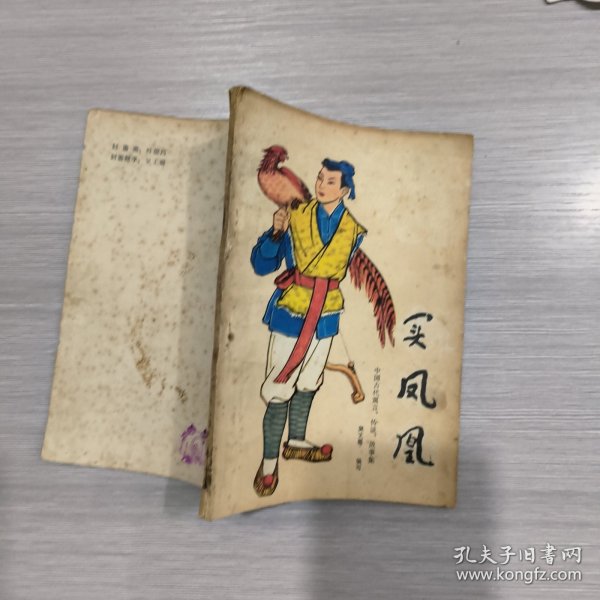 买凤凰
中国古代寓言、传说、故事集
编写
封面画：
封面题字：
孔夫子旧书网
www.kongfz.com